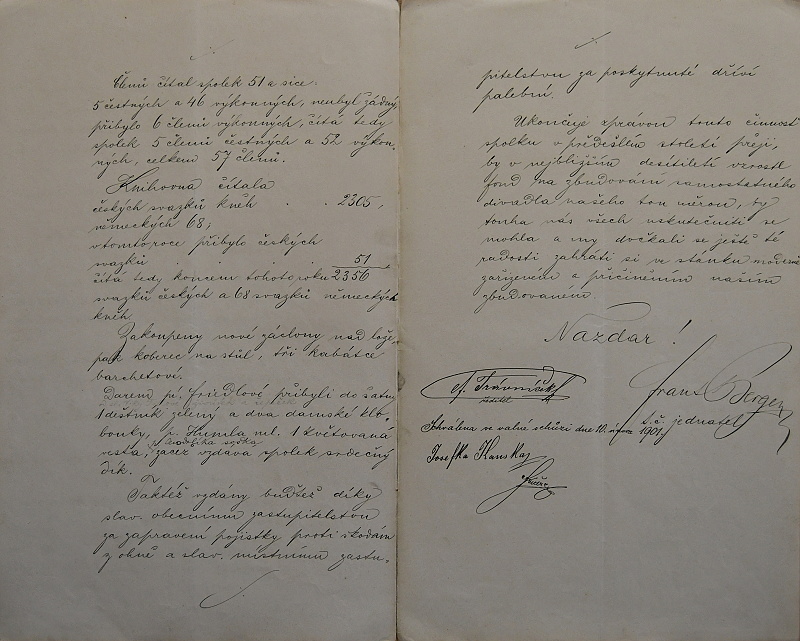 Členů čítal spolek 51 a sice:
5 čestných a 46 výkonných, neubyl žádný
přibylo 6 členů výkonných, čítá tedy
spolek 5 členů čestných a 52 výkon-
ných, celkem 57 členů.
Knihovna čítala
českých svazků kněh . . 2305,
německých 68;
v tomto roce přibylo českých
svazků . . . . 51
čítá tedy koncem tohoto roku 2356
svazků českých a 68 svazků německých
kněh.
Zakoupeny nové záclony nad lože,
pak koberec na stůl, tři kabátce
barchetové.
Darem pí. Friedlové přibyli do šatny
1 deštník zelený a dva damské klo-
bouky, p. Humla ml. 1 květovaná
vesta, začež vzdává spolek srdečný
dík.
Taktéž vzdány buďtež díky
slav. obecnímu zastupitelstvu
za zapravení pojistky proti škodám
z ohně a slav. místnímu zastu-
pitelstvu za poskytnuté dříví
palební.
Ukončuje zprávou touto činnost
spolku v předešlém století přeji,
by v nejbližším desítiletí vzrostl
fond na zbudování samostatného
divadla našeho tou měrou, by
touha nás všech uskutečniti se
mohla a my dočkali se ještě té
radosti zahráti si ve stánku moderně
zařízeném a přičiněním naším
zbudovaném.
Nazdar!
Frant. Bergen
t. č. jednatel
A. Trávníček
ředitel
Schválena ve valné schůzi dne 10. 1901
Josefka Hanska